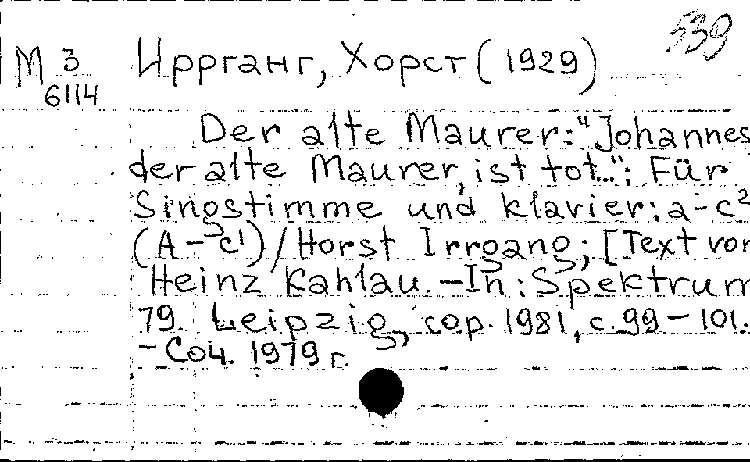 539
М 3 Иррганг, Хорст (1929)
6114
Der alte Maurer: "Johannes
der alte Maurer, ist tot...": Für
Singstimme und Klavier: a-c²
(A-c¹) / Horst Irrgang; [Text von
Heinz Kahlau. - In: Spektrum
79. Leipzig, cop. 1981, с. 99-101.
- Соч. 1979 г.